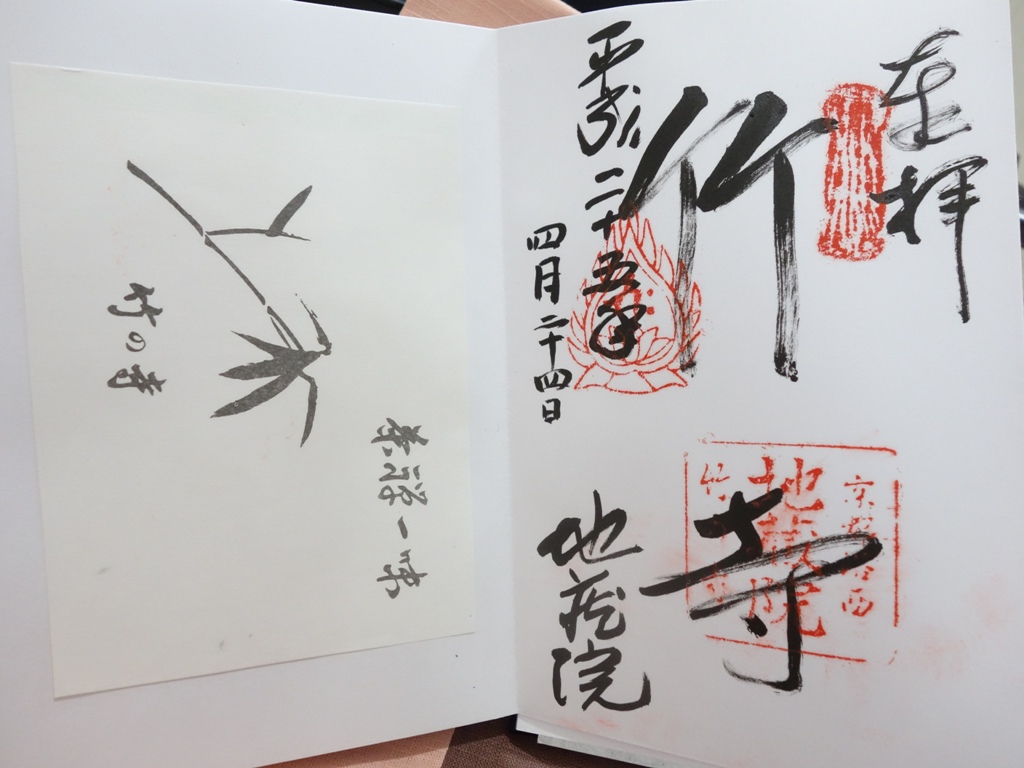 奉拝
竹寺
平成二十五年
四月二十四日
地蔵院
京都洛西
地蔵院
茶禅一味
竹の寺